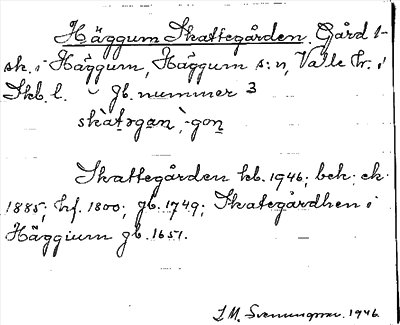 Häggum Skattegården. Gård 1-
sk. i Häggum, Häggum s:n, Valle hr. i
Skb. l. – Gb. nummer 3
skàtəgan, -gon
Skattegården kb. 1946; beh. ek.
1885; hf. 1800; gb. 1749; Skategårdhen i
Häggium gb. 1651.
I.M. Svenungsson. 1946